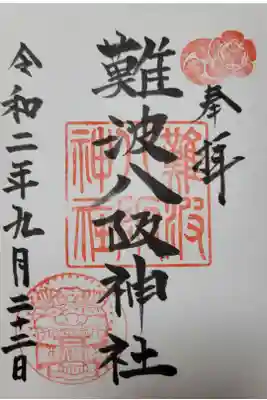 奉拝
難波八阪神社
令和二年九月二十二日
難波
八阪
神社